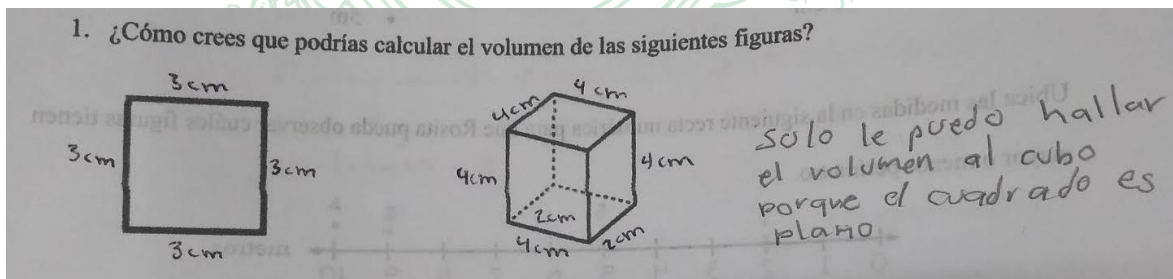 1. ¿Cómo crees que podrías calcular el volumen de las siguientes figuras?
3cm
3cm
3cm
3cm
4cm
4cm
4cm
4cm
2cm
4cm
2cm
solo le puedo hallar
el volumen al cubo
porque el cuadrado es
plano